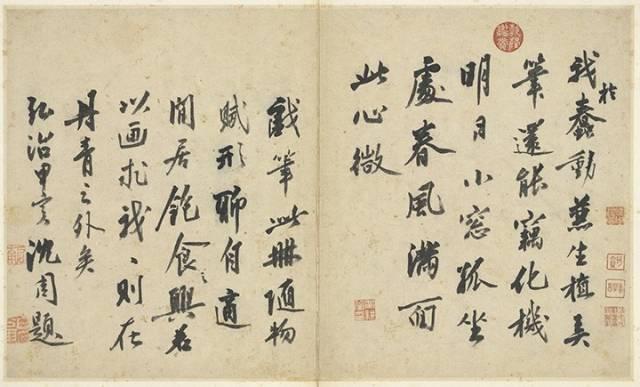 我於蠢動兼生植弄
筆還能竊化機
明月小窓孤坐
處春風滿面
此心微
戲筆此冊隨物
賦形聊自適
閒居飽食之興若
以画求我〻則在
丹青之外矣
弘治甲寅沈周題